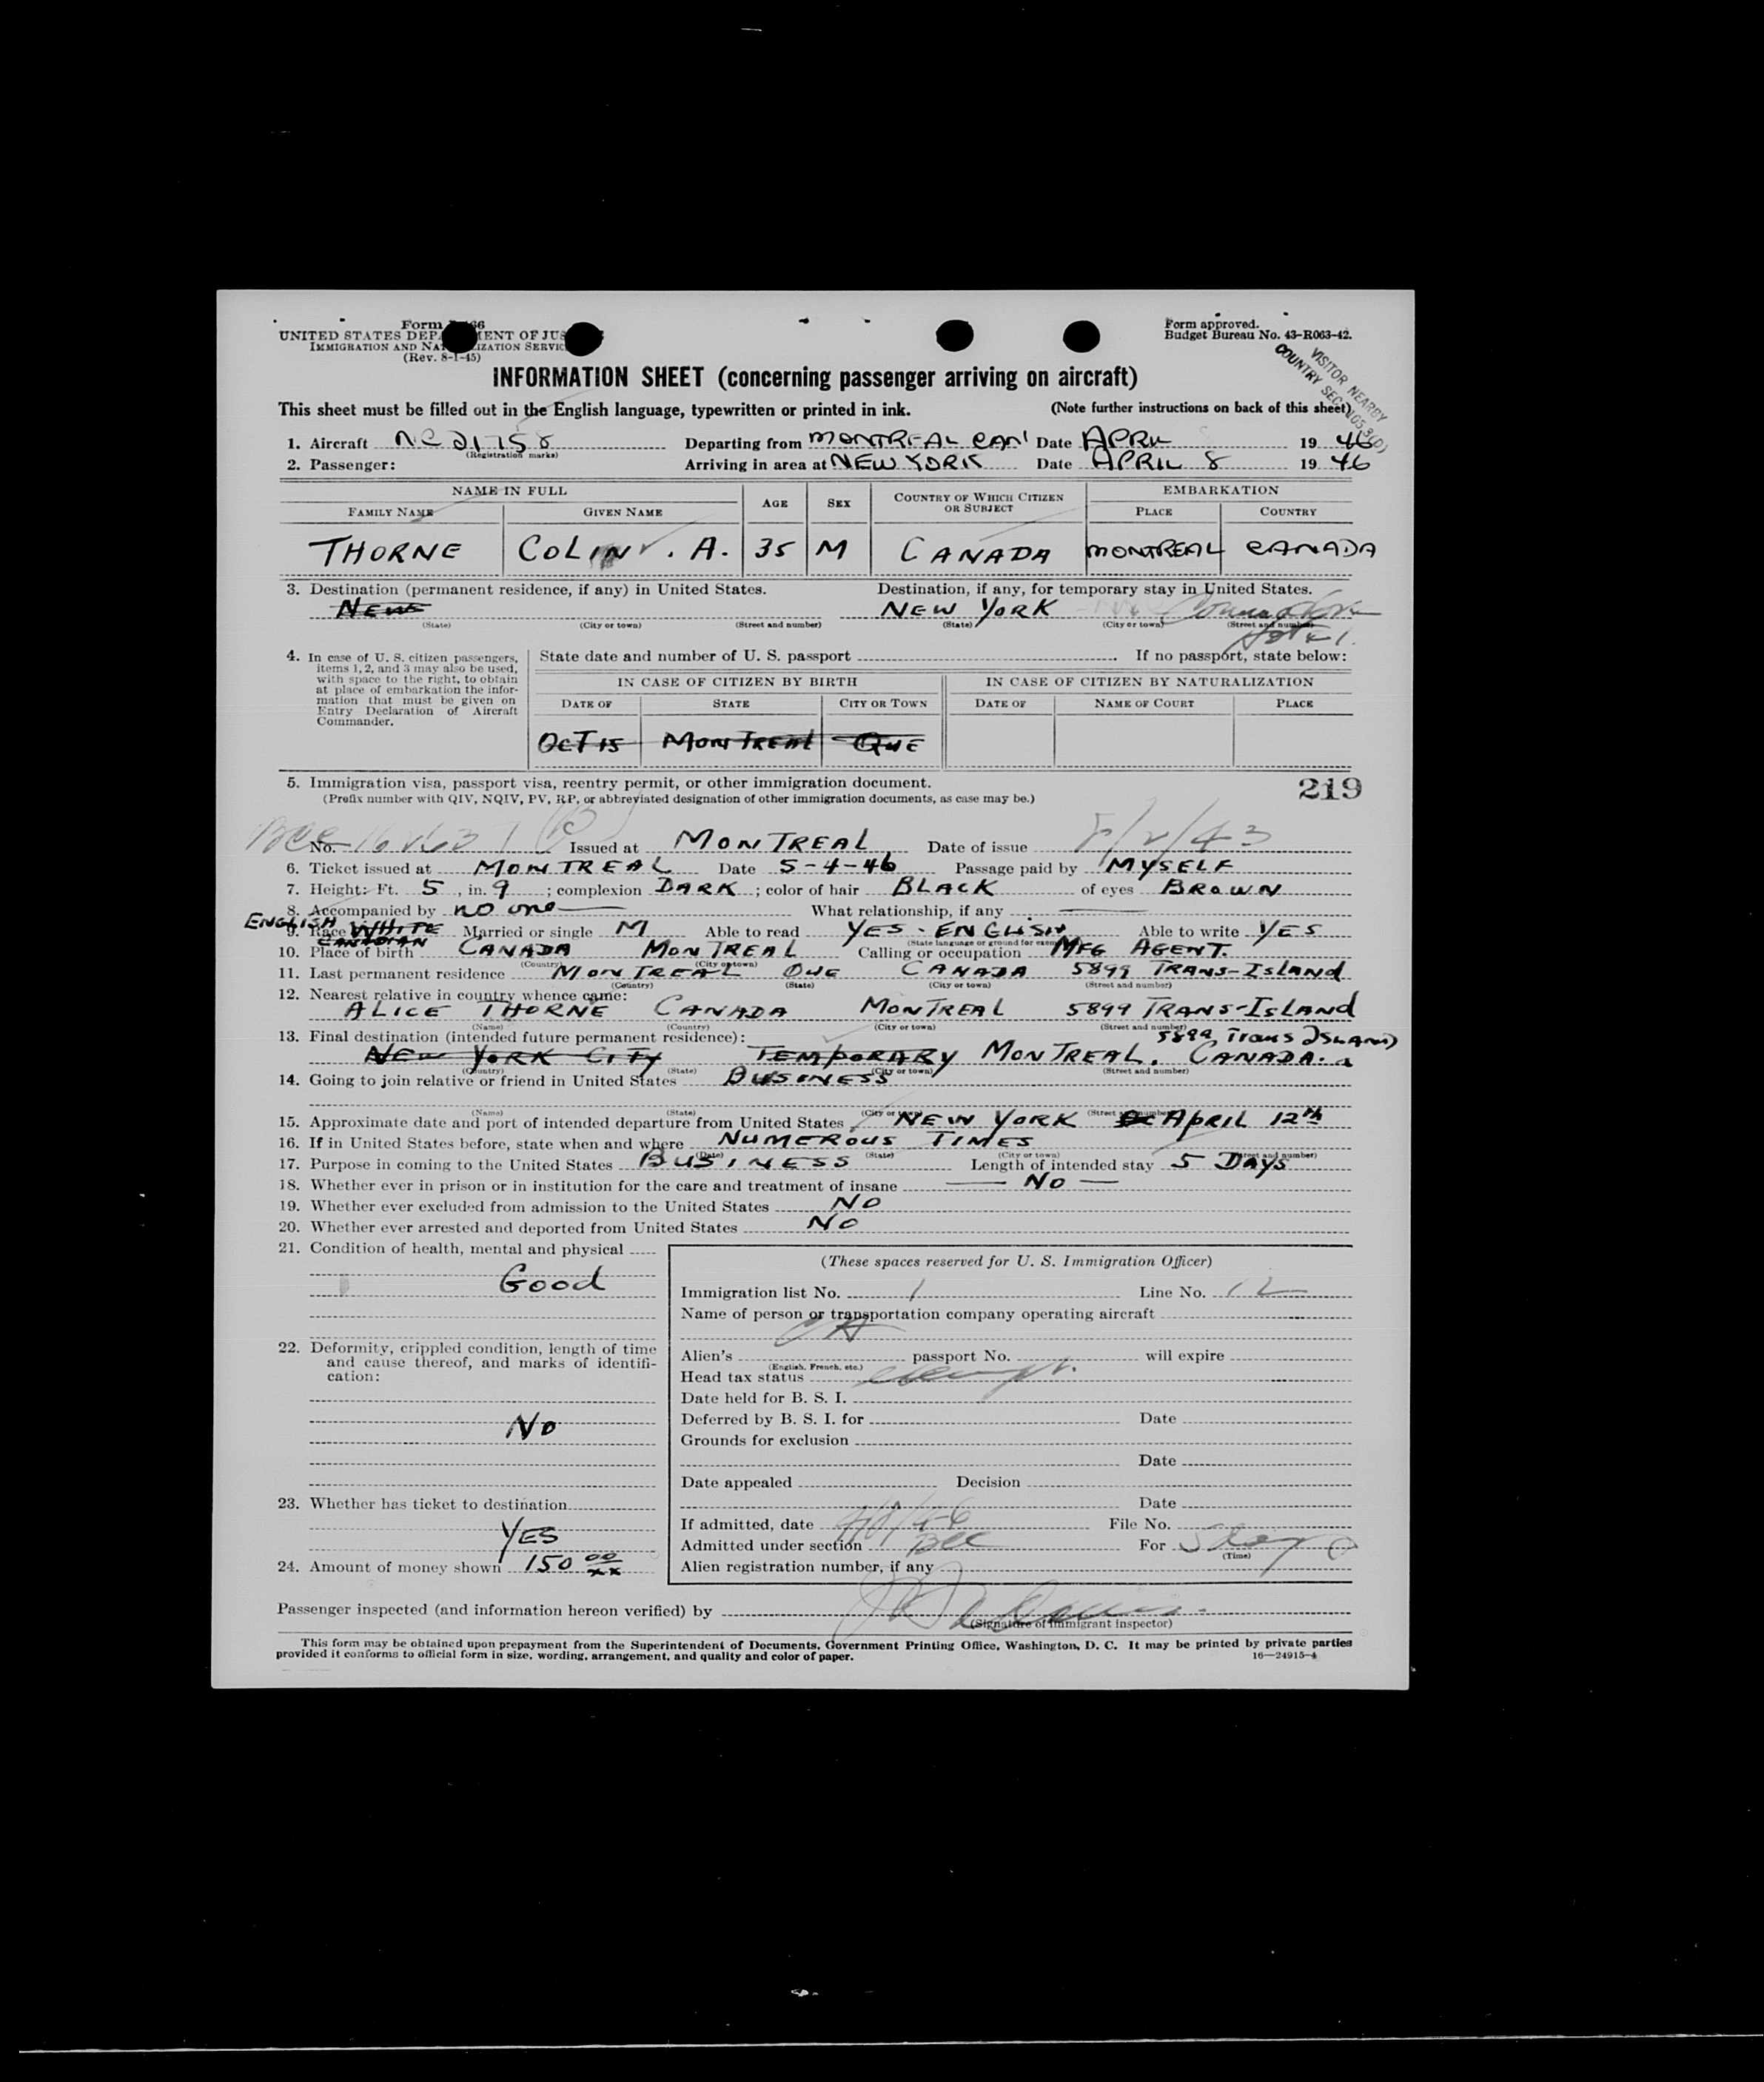 Form 66
UNITED STATES DEP ENT OF JUS
IMMIGRATION AND NAT IZATION SERVIC
(Rev. 8-1-45)
Form approved.
Budget Bureau No. 43-R063-42.
VISITOR NEARBY
COUNTRY SEC.
INFORMATION SHEET (concerning passenger arriving on aircraft)
This sheet must be filled out in the English language, typewritten or printed in ink. (Note further instructions on back of this sheet)
1. Aircraft NC 21758 Departing from MONTREAL CAN Date APRIL 1946
(Registration marks)
2. Passenger: Arriving in area at NEW YORK Date APRIL 8 1946
NAME IN FULL AGE SEX COUNTRY OF WHICH CITIZEN OR SUBJECT EMBARKATION
FAMILY NAME GIVEN NAME PLACE COUNTRY
THORNE COLIN . A. 35 M CANADA MONTREAL CANADA
3. Destination (permanent residence, if any) in United States. Destination, if any, for temporary stay in United States.
NEW NEW YORK
(State) (City or town) (Street and number) (State) (City or town) (Street and number)
Hotel
4. In case of U. S. citizen passengers, items 1, 2, and 3 may also be used, with space to the right, to obtain at place of embarkation the information that must be given on Entry Declaration of Aircraft Commander.
State date and number of U. S. passport If no passport, state below:
IN CASE OF CITIZEN BY BIRTH IN CASE OF CITIZEN BY NATURALIZATION
DATE OF STATE CITY OR TOWN DATE OF NAME OF COURT PLACE
OCT 15 MONTREAL QUE
5. Immigration visa, passport visa, reentry permit, or other immigration document. 219
(Prefix number with QIV, NQIV, PV, RP, or abbreviated designation of other immigration documents, as case may be.)
No. Issued at MONTREAL Date of issue
6. Ticket issued at MONTREAL Date 5-4-46 Passage paid by MYSELF
7. Height: Ft. 5, in. 9; complexion DARK; color of hair BLACK of eyes BROWN
8. Accompanied by no one What relationship, if any
ENGLISH
9. Race WHITE Married or single M Able to read YES - ENGLISH Able to write YES
CANADIAN (State language or ground for exemption)
10. Place of birth CANADA MONTREAL Calling or occupation MFG AGENT.
(Country) (City or town)
11. Last permanent residence MONTREAL QUE CANADA 5899 TRANS-ISLAND
(Country) (State) (City or town) (Street and number)
12. Nearest relative in country whence came:
ALICE THORNE CANADA MONTREAL 5899 TRANS-ISLAND
(Name) (Country) (City or town) (Street and number)
13. Final destination (intended future permanent residence): 5899 Trans ISLAND
NEW YORK CITY TEMPORARY MONTREAL. CANADA.
(Country) (State) (City or town) (Street and number)
14. Going to join relative or friend in United States BUSINESS
(Name) (State) (City or town) (Street and number)
15. Approximate date and port of intended departure from United States NEW YORK APRIL 12th
16. If in United States before, state when and where NUMEROUS TIMES
(Date) (State) (City or town) (Street and number)
17. Purpose in coming to the United States BUSINESS Length of intended stay 5 DAYS
18. Whether ever in prison or in institution for the care and treatment of insane — NO —
19. Whether ever excluded from admission to the United States NO
20. Whether ever arrested and deported from United States NO
21. Condition of health, mental and physical
Good
22. Deformity, crippled condition, length of time and cause thereof, and marks of identification:
NO
23. Whether has ticket to destination
YES
24. Amount of money shown 150 00/xx
(These spaces reserved for U. S. Immigration Officer)
Immigration list No. 1 Line No. 12
Name of person or transportation company operating aircraft
Alien's passport No. will expire
(English, French, etc.)
Head tax status exempt.
Date held for B. S. I.
Deferred by B. S. I. for Date
Grounds for exclusion
Date
Date appealed Decision
Date
If admitted, date 4/8/46 File No.
Admitted under section BCC For 5 days
(Time)
Alien registration number, if any
Passenger inspected (and information hereon verified) by
(Signature of immigrant inspector)
This form may be obtained upon prepayment from the Superintendent of Documents, Government Printing Office, Washington, D. C. It may be printed by private parties
provided it conforms to official form in size, wording, arrangement, and quality and color of paper. 16—24915-4